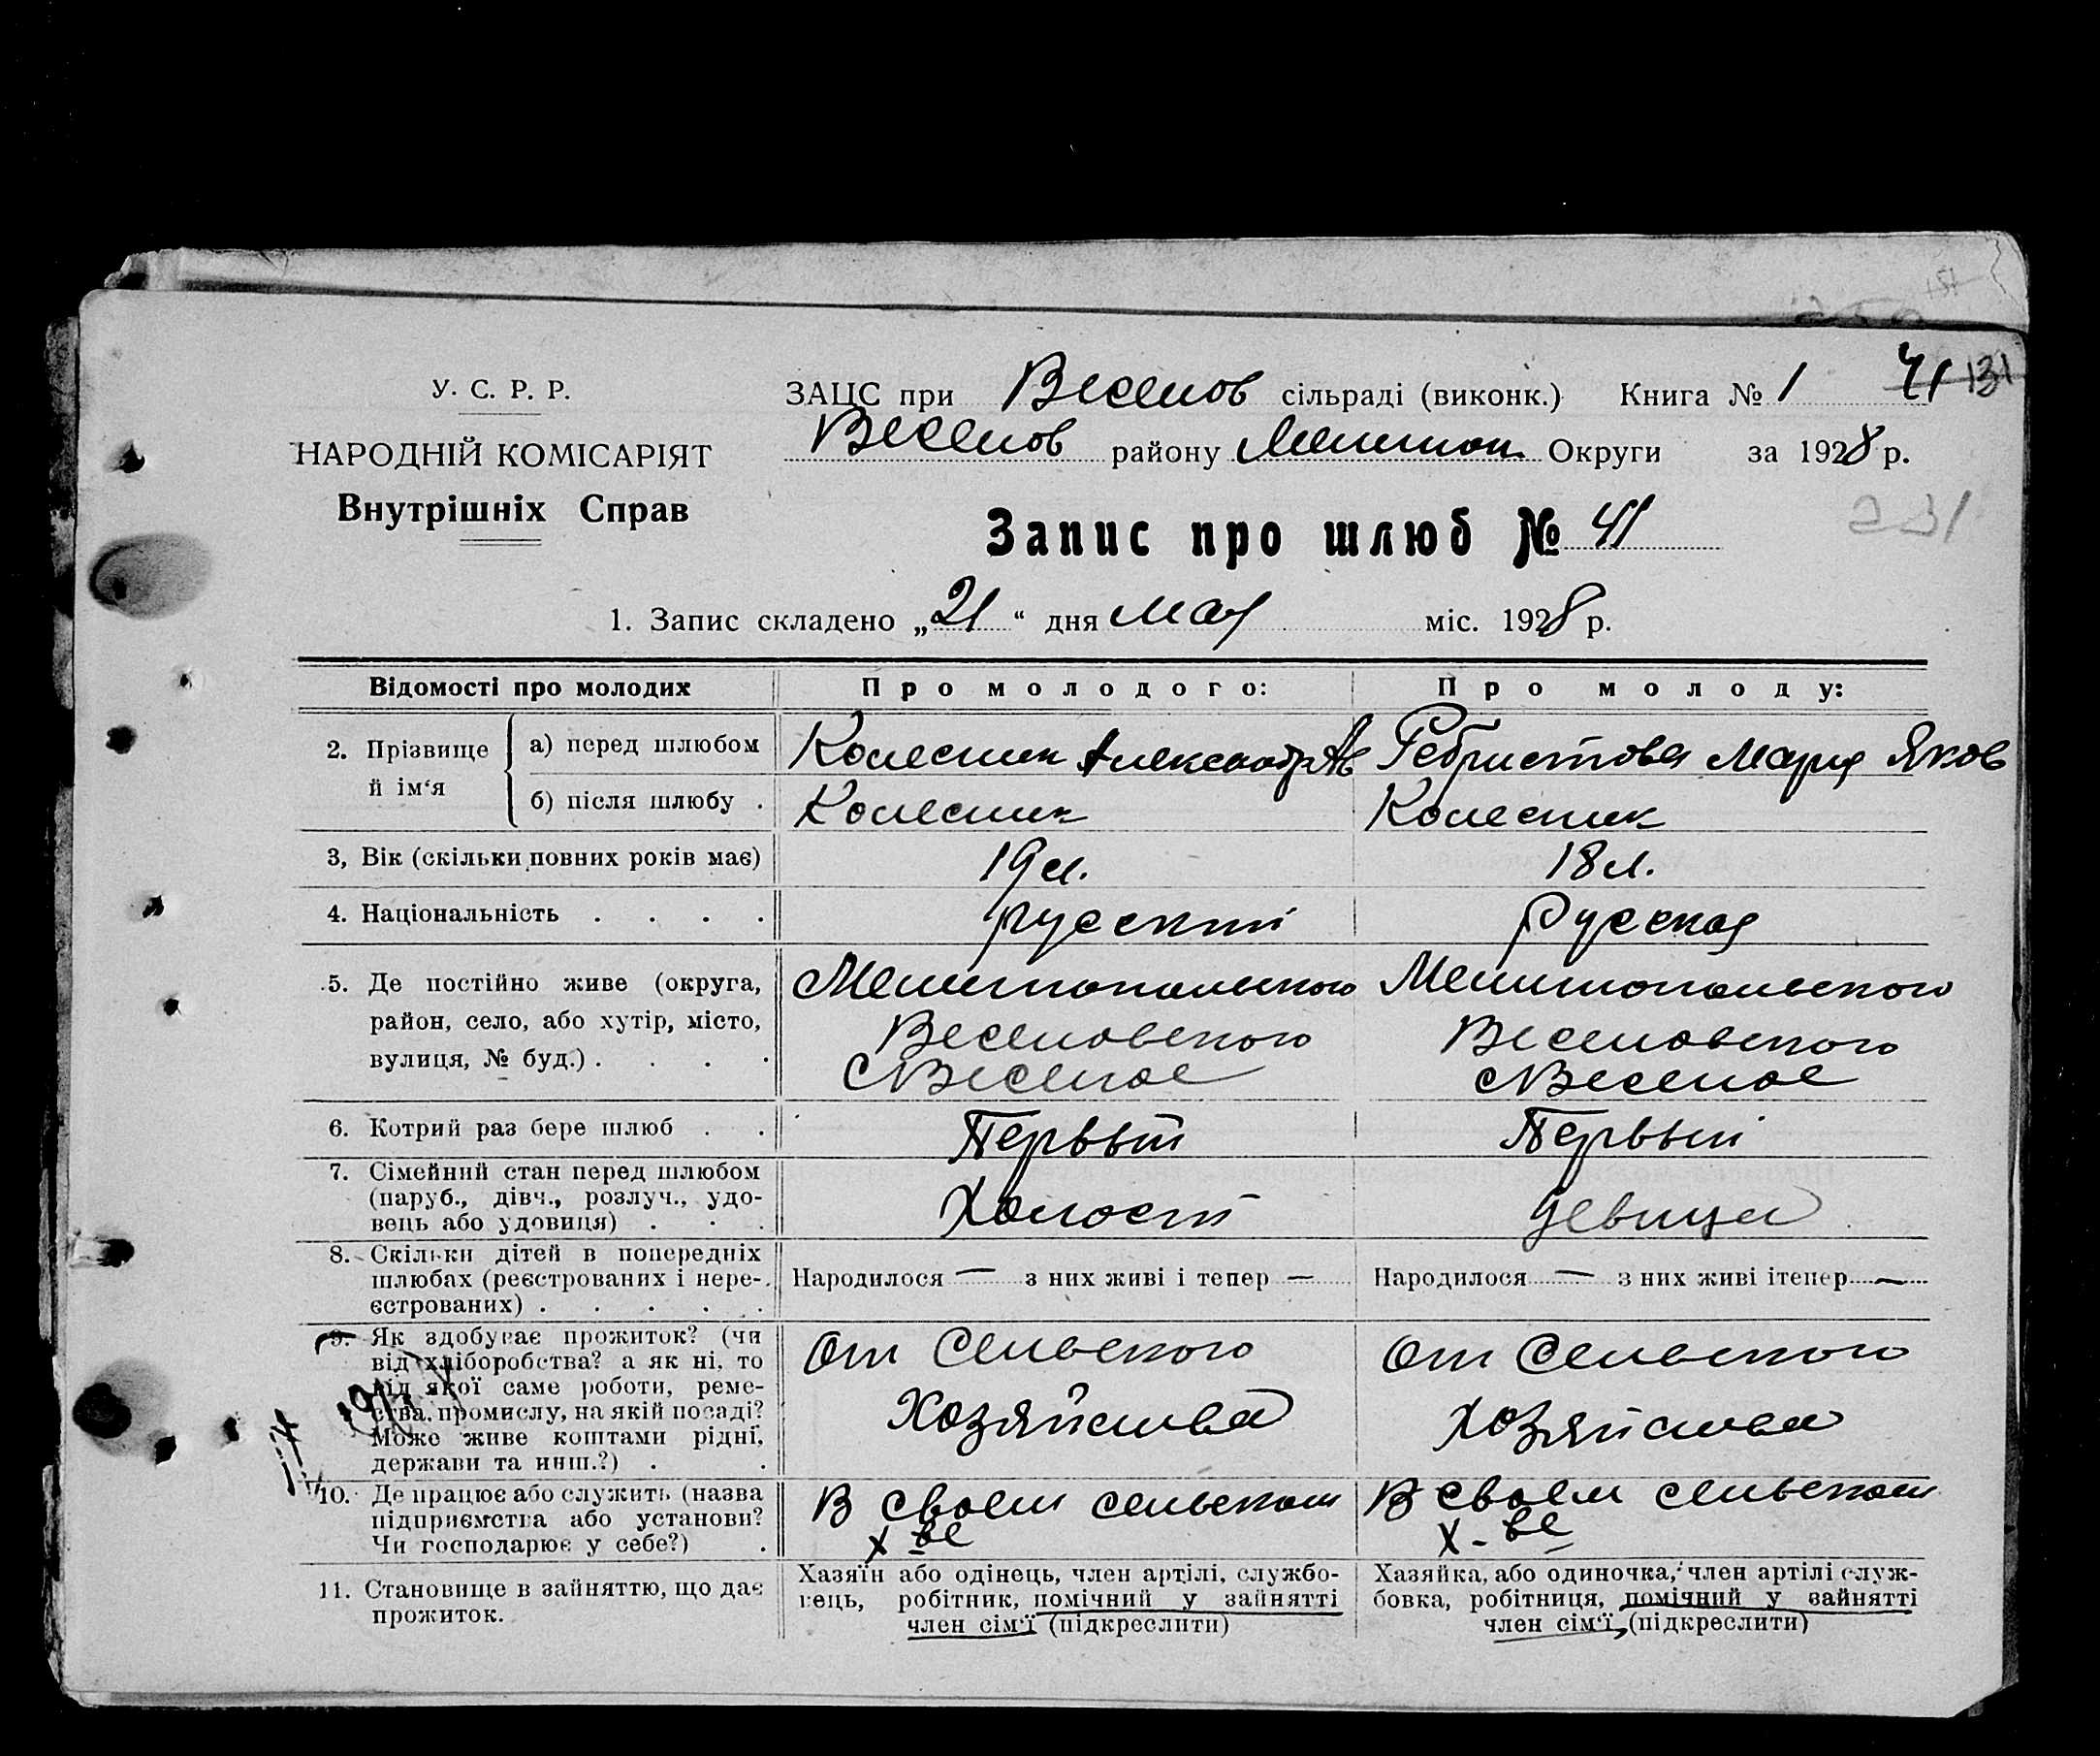 У. С. Р. Р.
НАРОДНІЙ КОМІСАРІЯТ
Внутрішніх Справ
ЗАЦС при Веселов сільраді (виконк.) Книга № 1 41 131
Веселов району Мелитоп. Округи за 1928 р.
231
Запис про шлюб № 41
1. Запис складено „21“ дня мая міс. 1928 р.
Відомості про молодих
Про молодого:
Про молоду:
2. Прізвище й ім‘я
а) перед шлюбом
Колесник Александр Ав
Гебристова Мария Яков
б) після шлюбу .
Колесник
Колесник
3, Вік (скільки повних років має)
19 л.
18 л.
4. Національність . . . .
русский
Русская
5. Де постійно живе (округа,
район, село, або хутір, місто,
вулиця, № буд.) . . . .
Мелитопольского
Веселовского
с Веселое
Мелитопольского
Веселовского
с Веселое
6. Котрий раз бере шлюб . .
Первый
Первый
7. Сімейний стан перед шлюбом
(паруб., дівч., розлуч., удо-
вець або удовиця) . . .
Холост
девица
8. Скільки дітей в попередніх
шлюбах (реєстрованих і нере-
єстрованих) . . . . .
Народилося — з них живі і тепер —
Народилося — з них живі ітепер —
9. Як здобуває прожиток? (чи
від хліборобства? а як ні, то
від якої саме роботи, реме-
ства, промислу, на якій посаді?
Може живе коштами рідні,
держави та инш.?) . .
От Сельского
Хозяйства
От Сельского
Хозяйства
10. Де працює або служить (назва
підприємства або установи?
Чи господарює у себе?) .
В своем сельском
х-ве
В своем сельском
х-ве
11. Становище в зайняттю, що дає
прожиток.
Хазяїн або одінець, член артілі, службо-
вець, робітник, помічний у зайнятті
член сім‘ї (підкреслити)
Хазяйка, або одиночка, член артілі служ-
бовка, робітниця, помічний у зайнятті
член сім‘ї, (підкреслити)